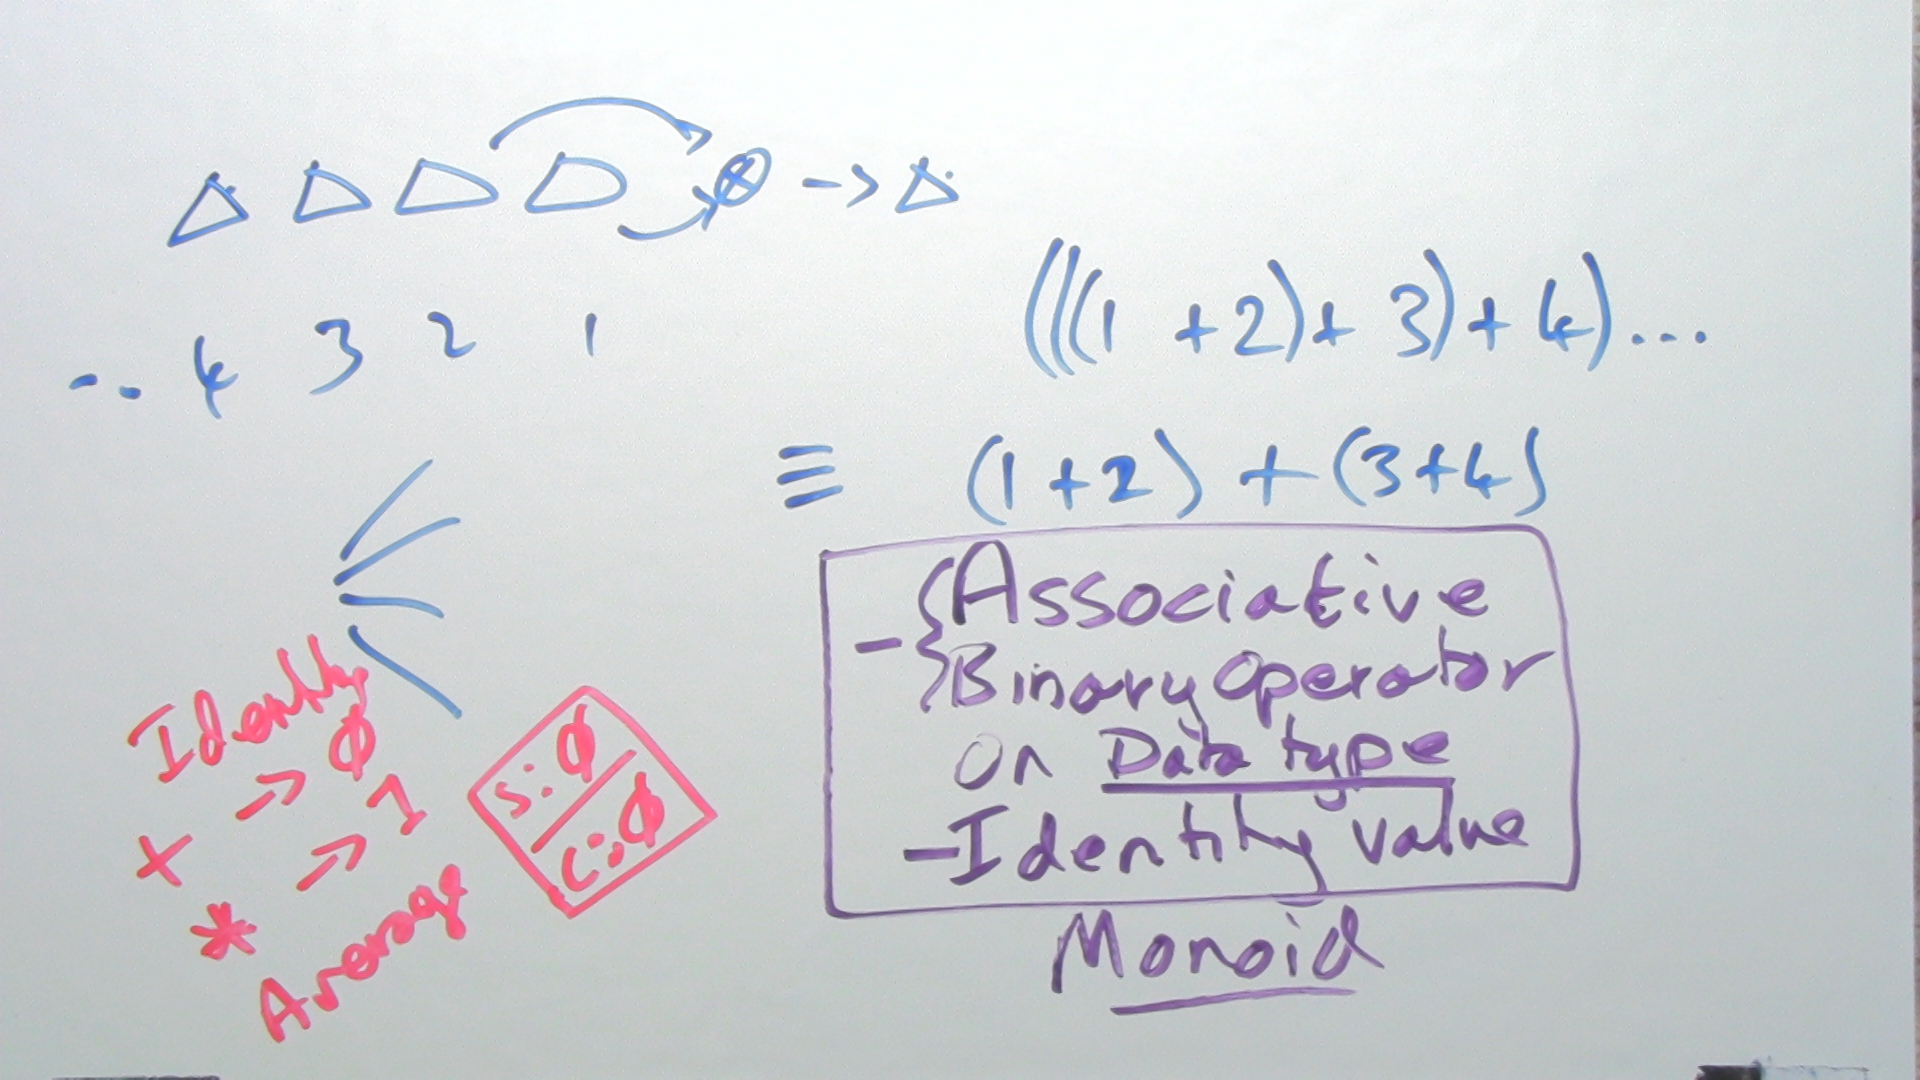 -- 4 3 2 1
(((1 + 2) + 3) + 4) ...
≡ (1 + 2) + (3 + 4)
- { Associative
Binary Operator
on Data type
- Identity value
Monoid
Identity
+ -> ϕ
* -> 1
Average
S: ϕ
C: ϕ